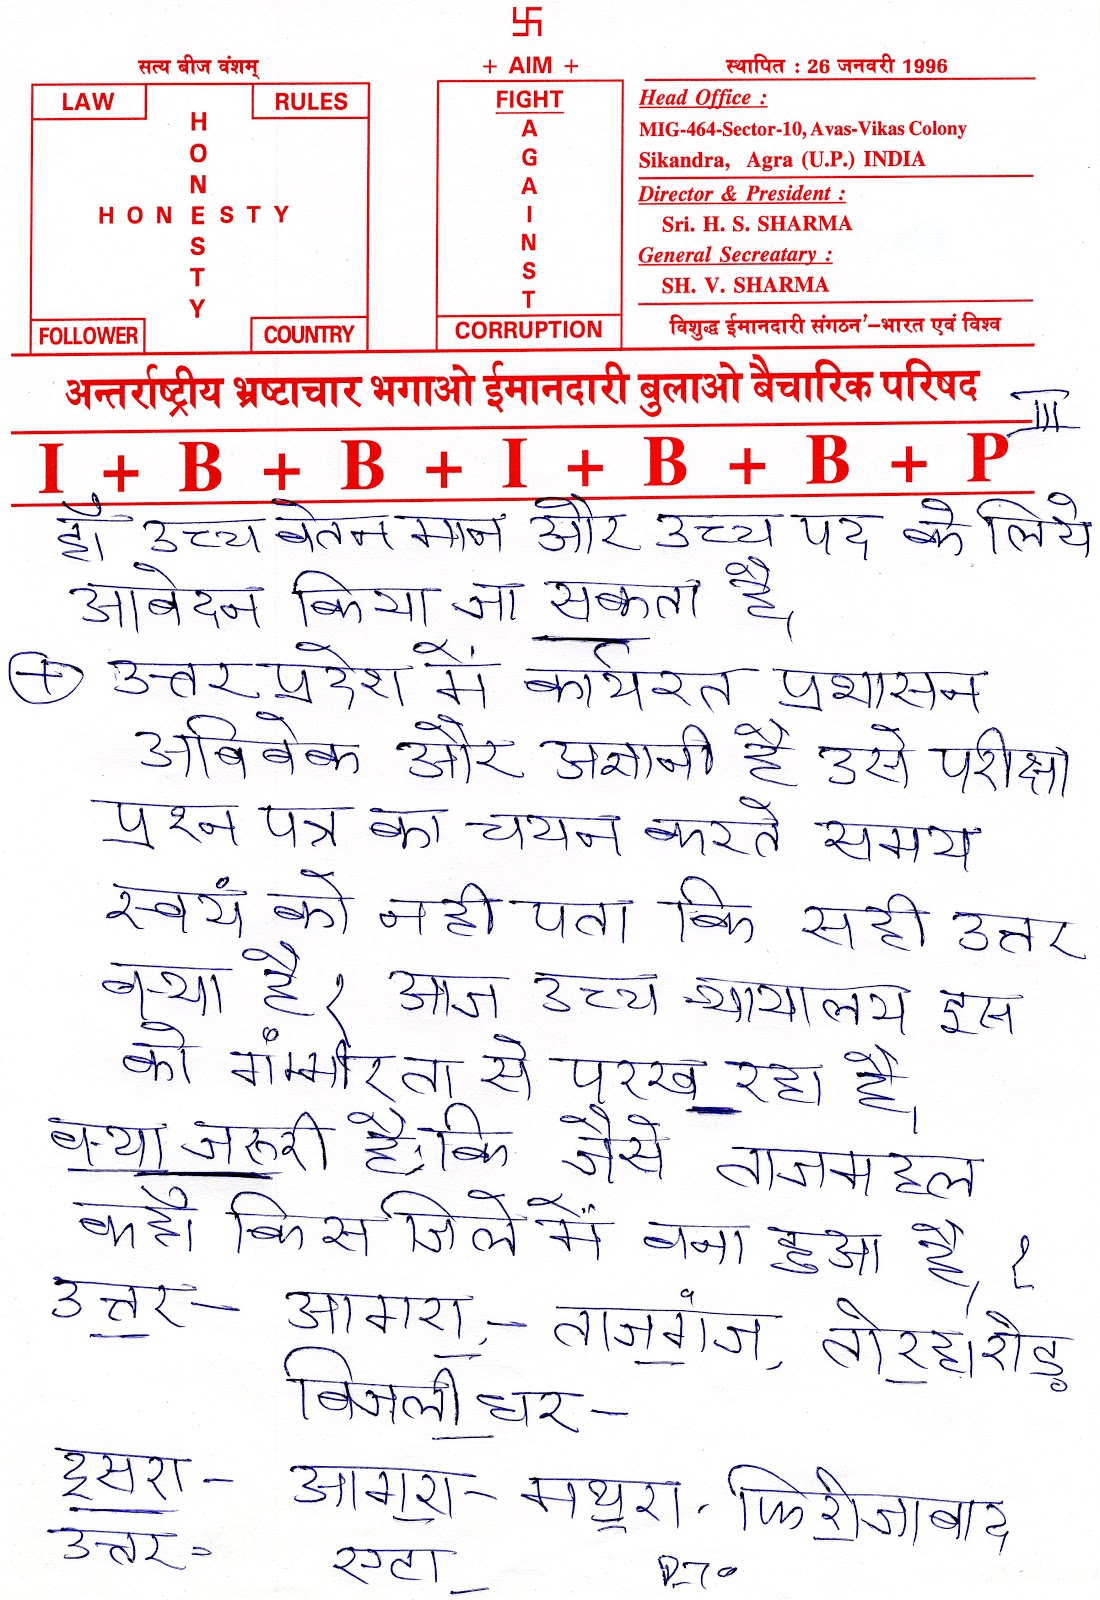 卐
सत्य बीज वंशम्
LAW
RULES
HONESTY
HONESTY
FOLLOWER
COUNTRY
+ AIM +
FIGHT
AGAINST
CORRUPTION
स्थापित : 26 जनवरी 1996
Head Office :
MIG-464-Sector-10, Avas-Vikas Colony
Sikandra, Agra (U.P.) INDIA
Director & President :
Sri. H. S. SHARMA
General Secreatary :
SH. V. SHARMA
विशुद्ध ईमानदारी संगठन'–भारत एवं विश्व
अन्तर्राष्ट्रीय भ्रष्टाचार भगाओ ईमानदारी बुलाओ बैचारिक परिषद
III
I + B + B + I + B + B + P
हाँ उच्च वेतन मान और उच्च पद के लिये
आवेदन किया जा सकता है,
+ उत्तर प्रदेश में कार्यरत प्रशासन
अविवेक और अज्ञानी है उसे परीक्षा
प्रश्न पत्र का चयन करते समय
स्वयं को नही पता कि सही उत्तर
क्या है? आज उच्च न्यायालय इस
को गंम्भीरता से परख रहा है,
क्या जरूरी है; कि जैसे ताजमहल
कहाँ किस जिले में बना हुआ है, ?
उत्तर – आगरा, – ताजगंज, तोरहा रोड़
बिजली घर –
दूसरा – आगरा – मथुरा, फिरोजाबाद
उत्तर = एटा